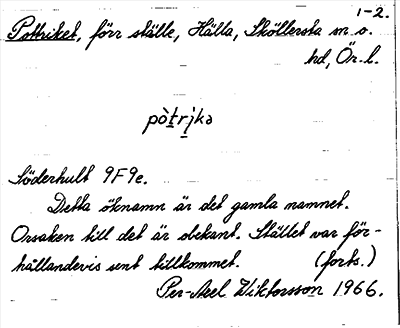 1-2.
Pottriket, förr ställe, Hälla, Sköllersta sn o.
hd, Ör. l.
pòtrjka
Söderhult 9F9e.
Detta öknamn är det gamla namnet.
Orsaken till det är obekant. Stället var för-
hållandevis sent tillkommet. (forts.)
Per-Axel Wiktorsson 1966.